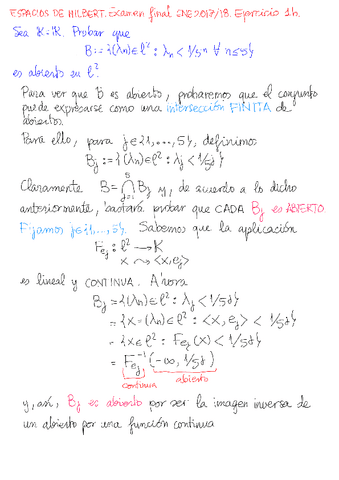 ESPACIOS DE HILBERT. Examen final ENE 2017/18. Ejercicio 1b.
Sea K=R. Probar que
B:={(λn)∈ℓ²: λn<1/5ⁿ ∀ n≤5}
es abierto en ℓ².
Para ver que B es abierto, probaremos que el conjunto
puede expresarse como una intersección FINITA de
abiertos.
Para ello, para j∈{1,...,5}, definimos
Bj:={(λn)∈ℓ²: λj<1/5ʲ}
Claramente B=⋂⁵ⱼ Bj y, de acuerdo a lo dicho
anteriormente, bastará probar que CADA Bj es ABIERTO
Fijamos j∈{1,...,5}. Sabemos que la aplicación
Fej: ℓ² → K
x ⤳ <x,ej>
es lineal y CONTINUA. Ahora
Bj={(λn)∈ℓ²: λj<1/5ʲ}
={x=(λn)∈ℓ²: <x,ej> < 1/5ʲ}
={x∈ℓ²: Fej(x)<1/5ʲ}
=Fej⁻¹(-∞, 1/5ʲ)
continua abierto
y, así, Bj es abierto por ser la imagen inversa de
un abierto por una función continua